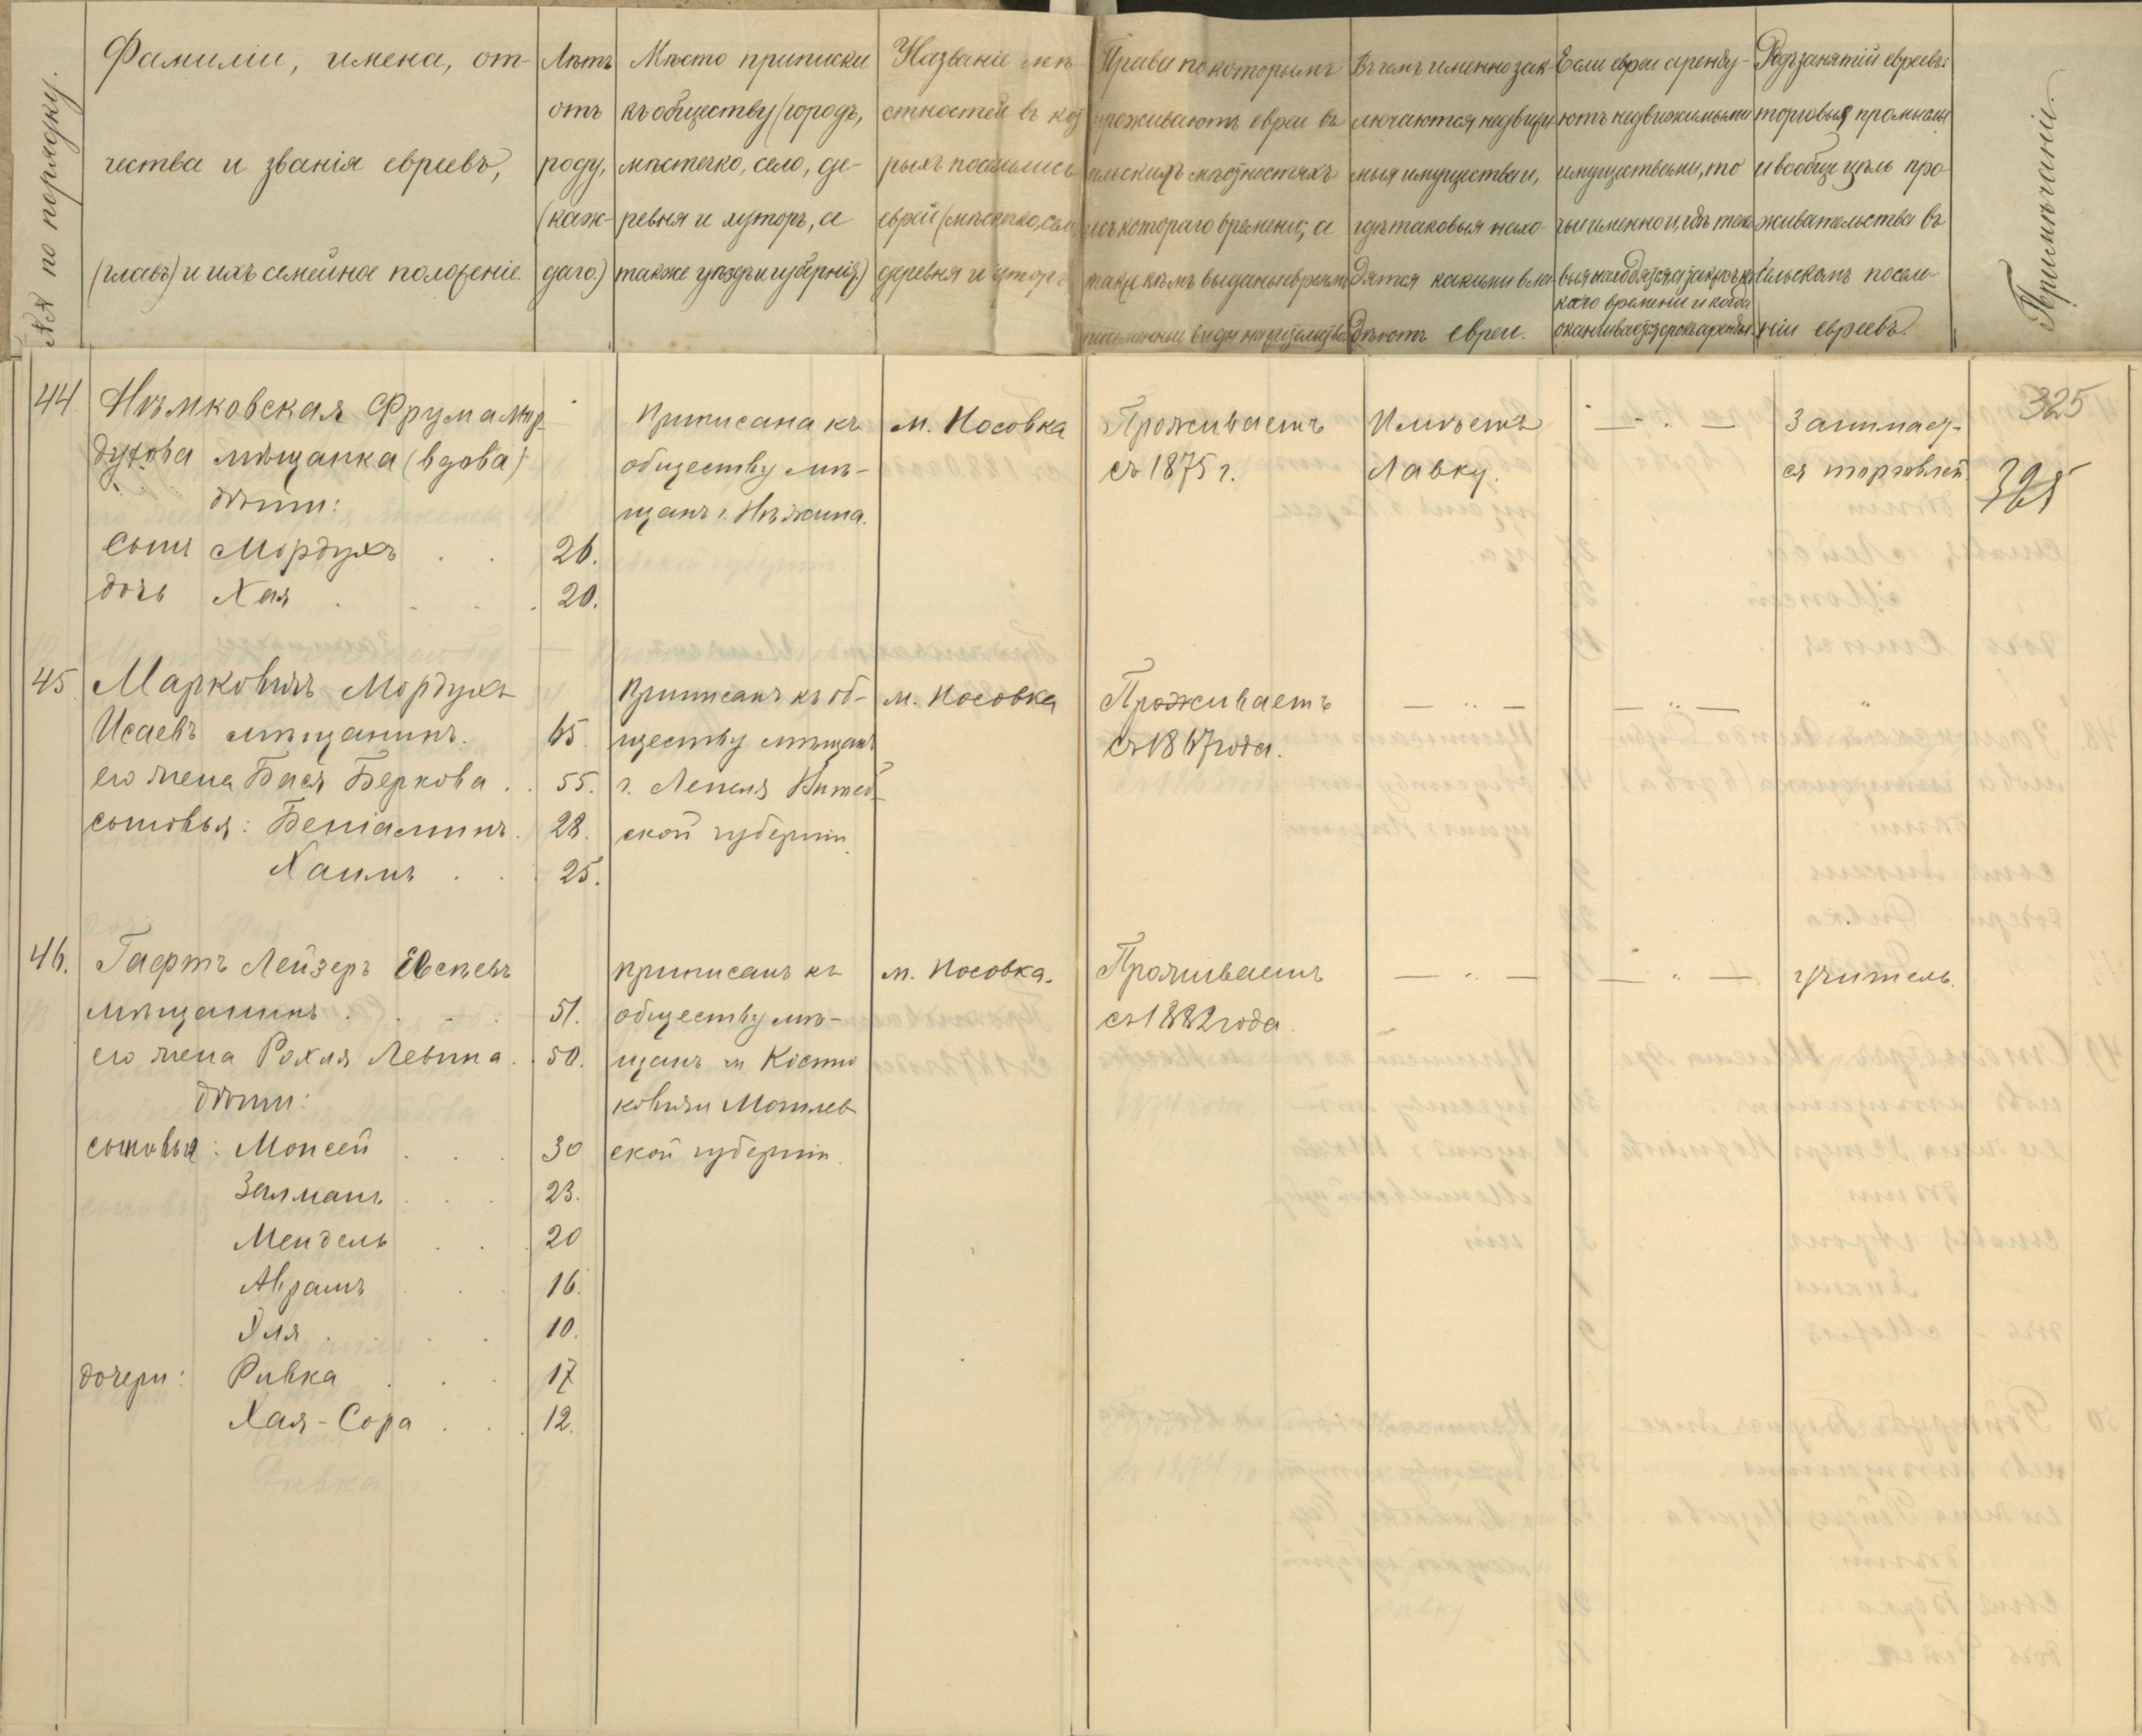 №№ по порядку.
Фамиліи, имена, от-
чества и званія евреевъ,
(главъ) и ихъ семейное положеніе.
Лѣтъ
отъ
роду,
(каж-
даго.)
Мѣсто приписки
къ обществу (городъ,
мѣстечко, село, де-
ревня и хуторъ, а
также уѣздъ и губернія.)
Названіе мѣ-
стностей въ кот
рыхъ поселились
евреи (мѣстечко, село,
деревня и хуторъ
Права по которымъ
проживаютъ евреи въ
сельскихъ мѣстностяхъ
и съ котораго времени; а
также кѣмъ выданы евреямъ
письменные виды на жительство
Въ чемъ именно зак-
лючаются недвижи
мыя имущества и,
гдѣ таковыя нахо-
дятся какими вла
дѣютъ евреи.
Если евреи аренду-
ютъ недвижимыми
имуществами, то
чьи именно и, гдѣ тако
выя находятся, а также съ ка
кого времени и когда
оканчивается срокъ аренды.
Родъ занятій евреевъ:
торговыя промыслы
и вообще цѣль про-
живательства въ
сельскомъ посел-
ніи евреевъ.
Примѣчаніе.
325
325
44. Нѣмковская Фрума Мор-
духова мѣщанка (вдова)
дѣти:
сынъ Мордухъ . . 26.
дочь Хая . . . . 20.
Приписана къ
обществу мѣ-
щанъ г. Нѣжина.
м. Носовка
Проживаетъ
съ 1875 г.
Имѣетъ
Лавку.
— " —
Занимает-
ся торговлей.
45 Марковичъ Мордухъ
Исаевъ мѣщанинъ. 65.
его жена Бася Беркова . . 55.
сыновья: Беніаминъ . 28.
Хаимъ . . . 25.
Приписанъ къ об-
ществу мѣщанъ
г. Лепеля Витеб-
ской губерніи.
м. Носовка
Проживаетъ
съ 1867 года.
— " —
— " —
"
46. Гафтъ Лейзеръ Евсѣевъ
мѣщанинъ . . . . 51.
его жена Рохля Левина . . 50.
дѣти:
сыновья: Моисей . . . 30
Залманъ . . . 23.
Мендель . . . 20
Абрамъ . . . 16.
Эля . . . . 10.
дочери: Ривка . . . 17
Хая-Сора . . . 12.
приписанъ къ
обществу мѣ-
щанъ м Костю
ковичи Могилев
ской губерніи.
м. Носовка.
Проживаетъ
съ 1882 года.
— " —
— " —
учитель.